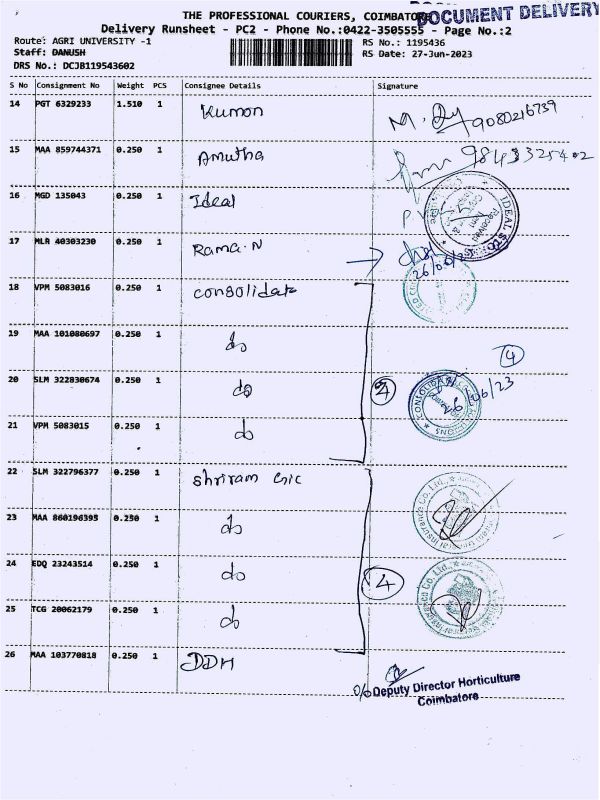 THE PROFESSIONAL COURIERS, COIMBATORE
DOCUMENT DELIVERY
Delivery Runsheet - PC2 - Phone No.:0422-3505555 - Page No.:2
Route: AGRI UNIVERSITY -1 RS No.: 1195436
Staff: DANUSH RS Date: 27-Jun-2023
DRS No.: DCJB119543602
S No Consignment No Weight PCS Consignee Details Signature
14 PGT 6329233 1.510 1 Kumon 9080216739
15 MAA 859744371 0.250 1 Amutha
16 MGD 135043 0.250 1 Ideal
17 MLR 40303230 0.250 1 Rama.N
26/06/23
18 VPM 5083016 0.250 1 consolidate
19 MAA 101080697 0.250 1 do 4
20 SLM 322830674 0.250 1 do 4 26/06/23
21 VPM 5083015 0.250 1 do
22 SLM 322796377 0.250 1 Shriram Gic
23 MAA 860196395 0.250 1 do
24 EDQ 23243514 0.250 1 do 4
25 TCG 20062179 0.250 1 do
26 MAA 103770818 0.250 1 DDH
O/o Deputy Director Horticulture
Coimbatore